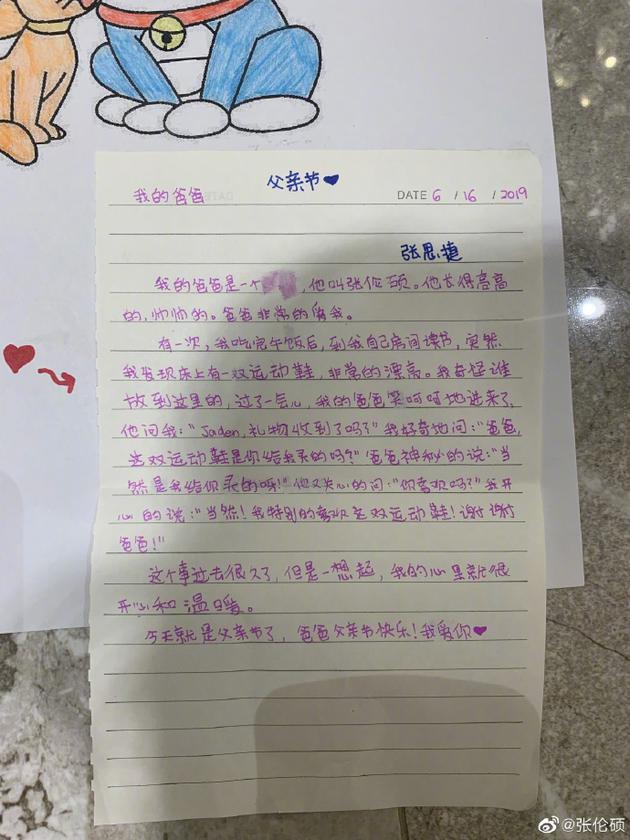 父亲节♥
我的爸爸 DATE 6 / 16 / 2019
张思捷
我的爸爸是一个 ，他叫张伦硕。他长得高高
的，帅帅的。爸爸非常的爱我。
有一次，我吃完午饭后，到我自己房间读书，突然
我发现床上有一双运动鞋，非常的漂亮。我奇怪谁
放到这里的，过了一会儿，我的爸爸笑呵呵地进来了，
他问我：“Jaden，礼物收到了吗？”我好奇地问：“爸爸，
这双运动鞋是你给我买的吗？”爸爸神秘的说：“当
然是我给你买的呀！”他又关心的问：“你喜欢吗？”我开
心的说：“当然！我特别的喜欢这双运动鞋！谢谢
爸爸！”
这个事过去很久了，但是一想起，我的心里就很
开心和温暖。
今天就是父亲节了，爸爸父亲节快乐！我爱你♥
@张伦硕